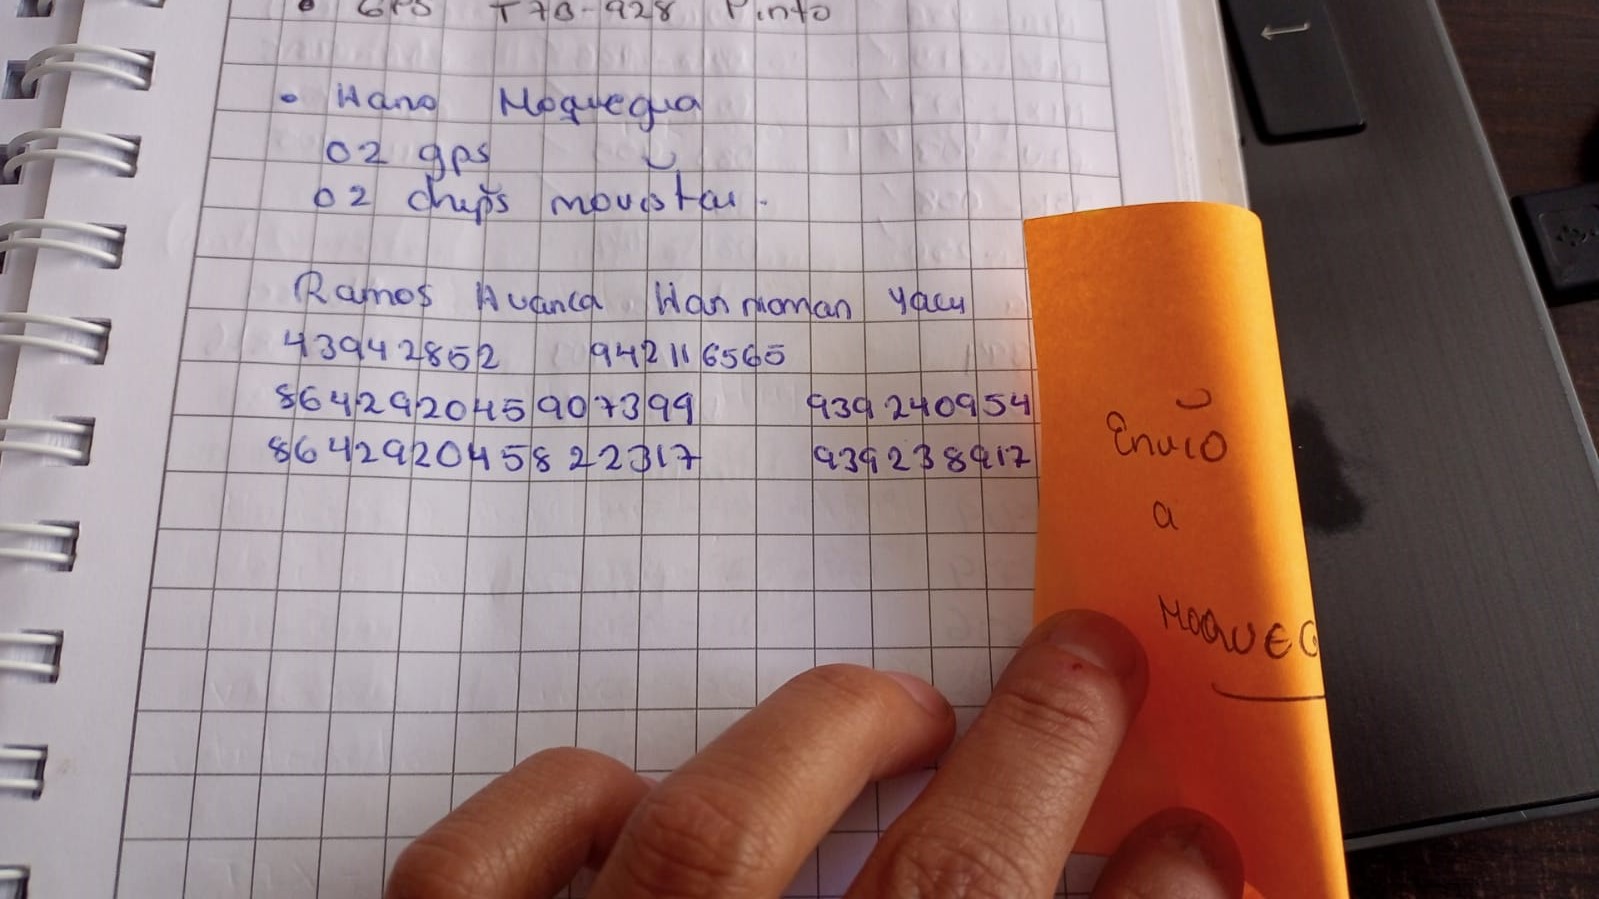 • GPS T7B-928 Pinto
• Hano Moquegua
02 gps
02 chips movistar.
Ramos Huanca Hanmoman Yacu
43942852 942116565
864292045907399 939240954
864292045822317 939238917
Envio
a
MOQUEG